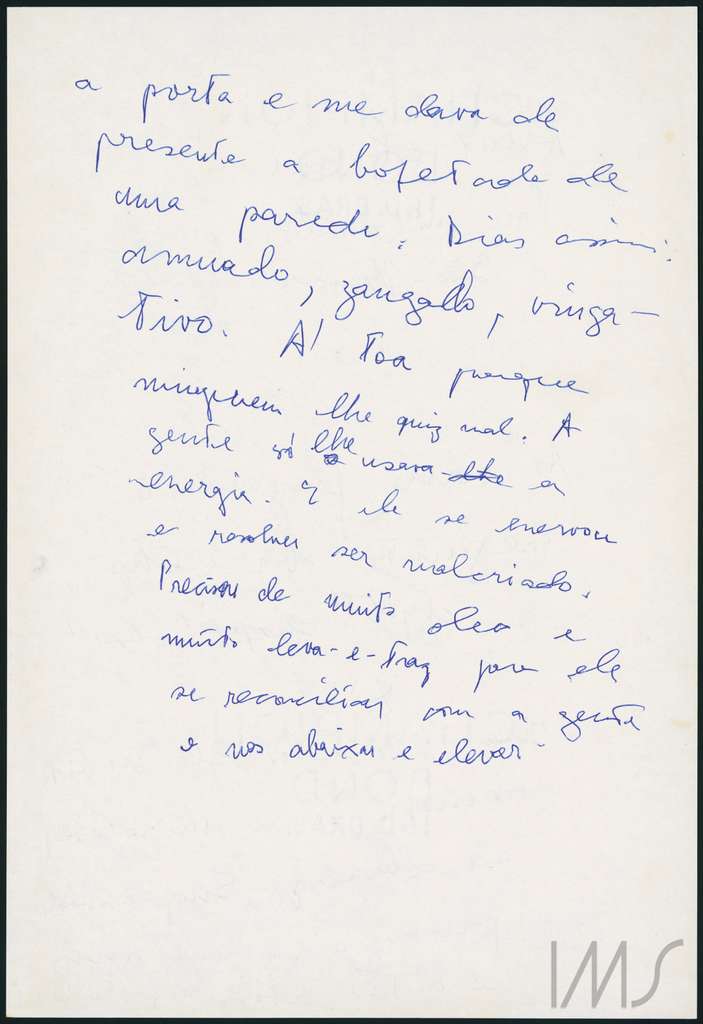 a porta e me dava de
presente a bofetada de
uma parede. Dias assim:
amuado, zangado, vinga-
tivo. A' toa porque
ninguem lhe quiz mal. A
gente só lhe usara lhe a
energia. E ele se enervou
e resolveu ser malcriado.
Precisou de muito oleo e
muito leva-e-traz para ele
se reconciliar com a gente
e nos abaixar e elevar
IMS